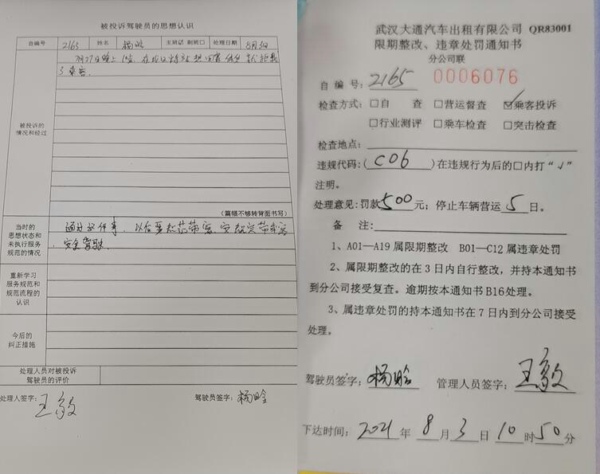 被投诉驾驶员的思想认识
自编号 2165 姓名 杨晗 主转话 处理日期 8月3日
被投诉的
情况和经过
（篇幅不够转背面书写）
当时的
思想状态和
未执行服务
规范的情况
通过这件事，以后
安全驾驶
重新学习
服务规范和
规范流程的
认识
今后的
纠正措施
处理人员对被投诉
驾驶员的评价
处理人签字： 王毅 驾驶员签字： 杨晗
武汉大通汽车出租有限公司 QR83001
限期整改、违章处罚通知书
分公司联
自编号：2165 0006076
检查方式：□自 查 □营运督查 ☑乘客投诉
□行业测评 □乘车检查 □突击检查
检查地点：
违规代码：( C06 ) 在违规行为后的□内打“√”
注明。
处理意见：罚款 500 元；停止车辆营运 5 日。
备 注：
1、A01—A19属限期整改 B01—C12属违章处罚
2、属限期整改的在3日内自行整改，并持本通知书
到分公司接受复查。逾期按本通知书B16处理。
3、属违章处罚的持本通知书在7日内到分公司接受
处理。
驾驶员签字：杨晗 管理人员签字：王毅
下达时间：2021年 8月 3日 10时 50分